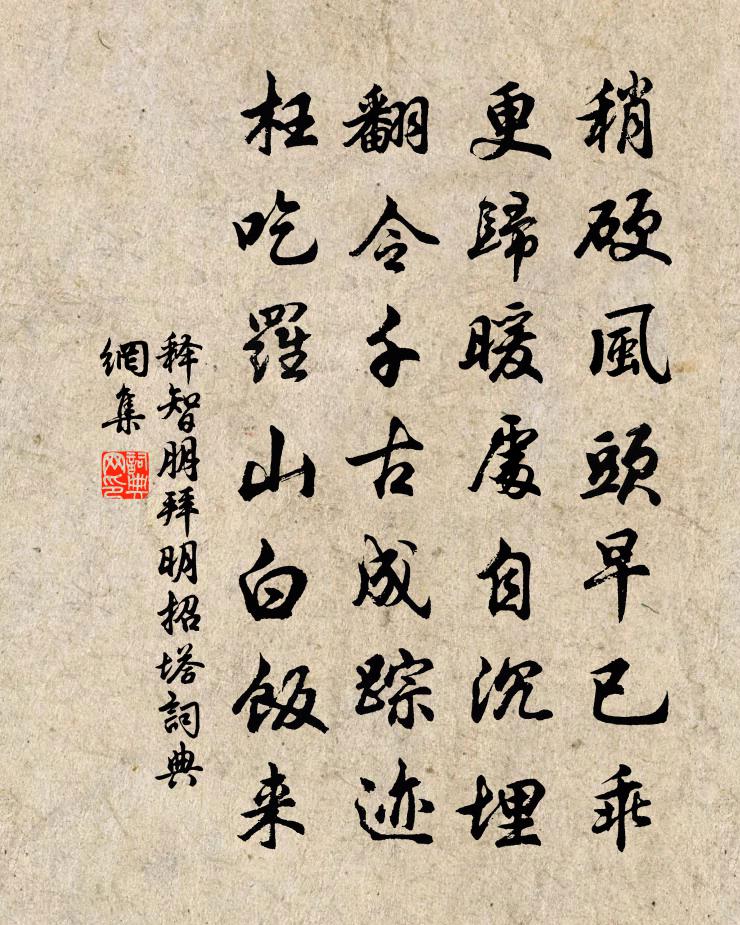 稍硬風頭早已乖
更歸暖處自沉埋
翻令千古成踪迹
枉吃羅山白飯来
释智朋拜明招塔詞典
網集
詞典
网印